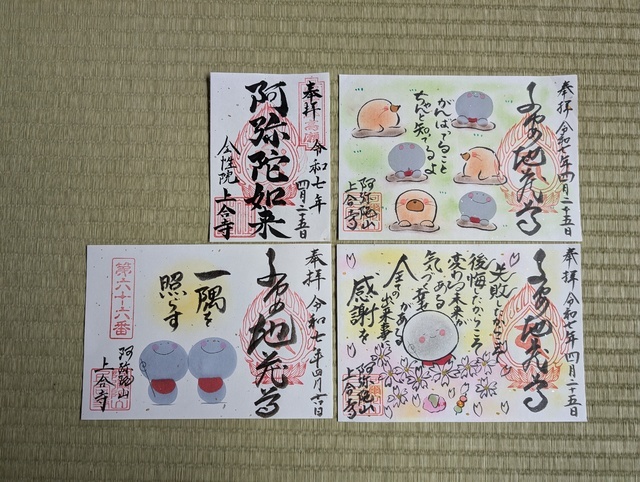 奉拝
令和七年
四月二十五日
阿弥陀如来
令性院
上合寺
奉拝
令和七年四月二十五日
地蔵尊
がんばってること
ちゃんと知ってるよ
阿弥陀山
上合寺
奉拝
令和七年四月
地蔵尊
一隅を
照らす
第六十六番
阿弥陀山
上合寺
奉拝
令和七年四月二十五日
地蔵尊
失敗したからこそ
後悔したからこそ
変わる未来が
ある
気づく事が
ある
全ての出来事に
感謝を
阿弥陀山
上合寺